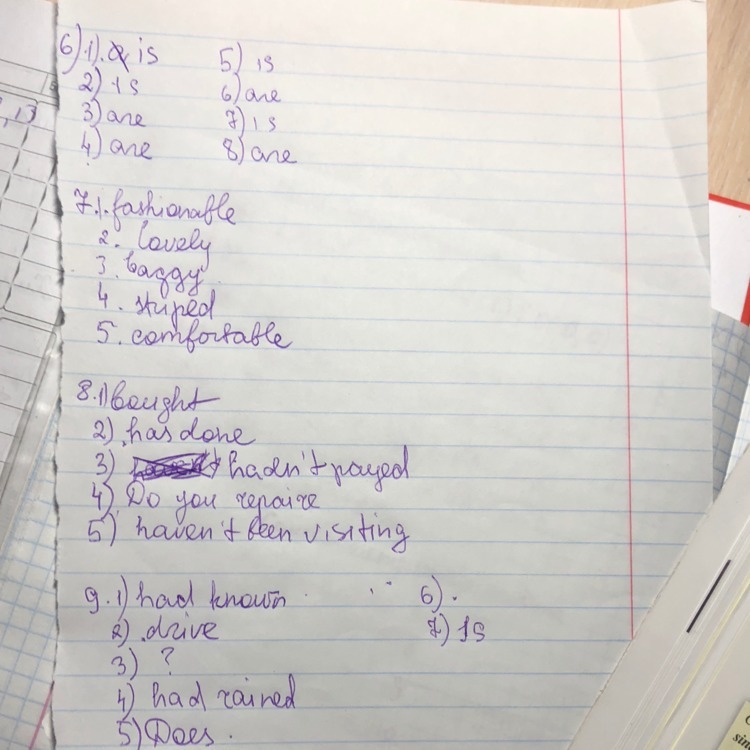 6) 1). is 5) is
2) is 6) are
3) are 7) is
4) are 8) are
7.1. fashionable
2. lovely
3. baggy
4. striped
5. comfortable
8.1) bought
2) has done
3) hadn't payed
4) Do you repaire
5) haven't been visiting
9. 1) had known 6).
2) drive 7) Is
3) ?
4) had rained
5) Does.